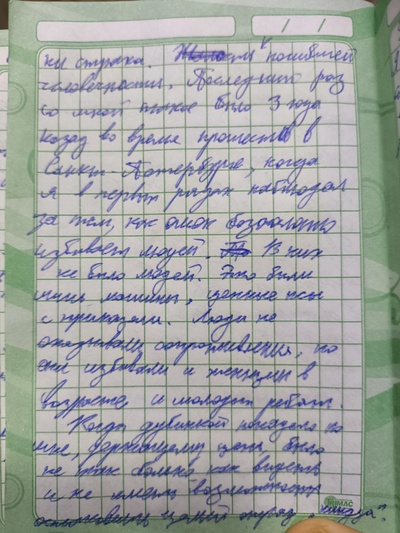 / /
ны страха. и погибшей
человечности. Последний раз
со мной такое было 3 года
назад во время протестов в
Санкт-Петербурге, когда
я в первых рядах наблюдал
за тем, как омон безжалостно
избивает людей. В них
не было людей. Это были
лишь машины, цепные псы
с приказами. Люди не
оказывали сопротивления, но
они избивали и женщин в
возрасте и молодых ребят.
Когда дубинкой попадало по
мне, держащему цепь, было
не так больно, как видеть
и не иметь возможности
остановить целый отряд